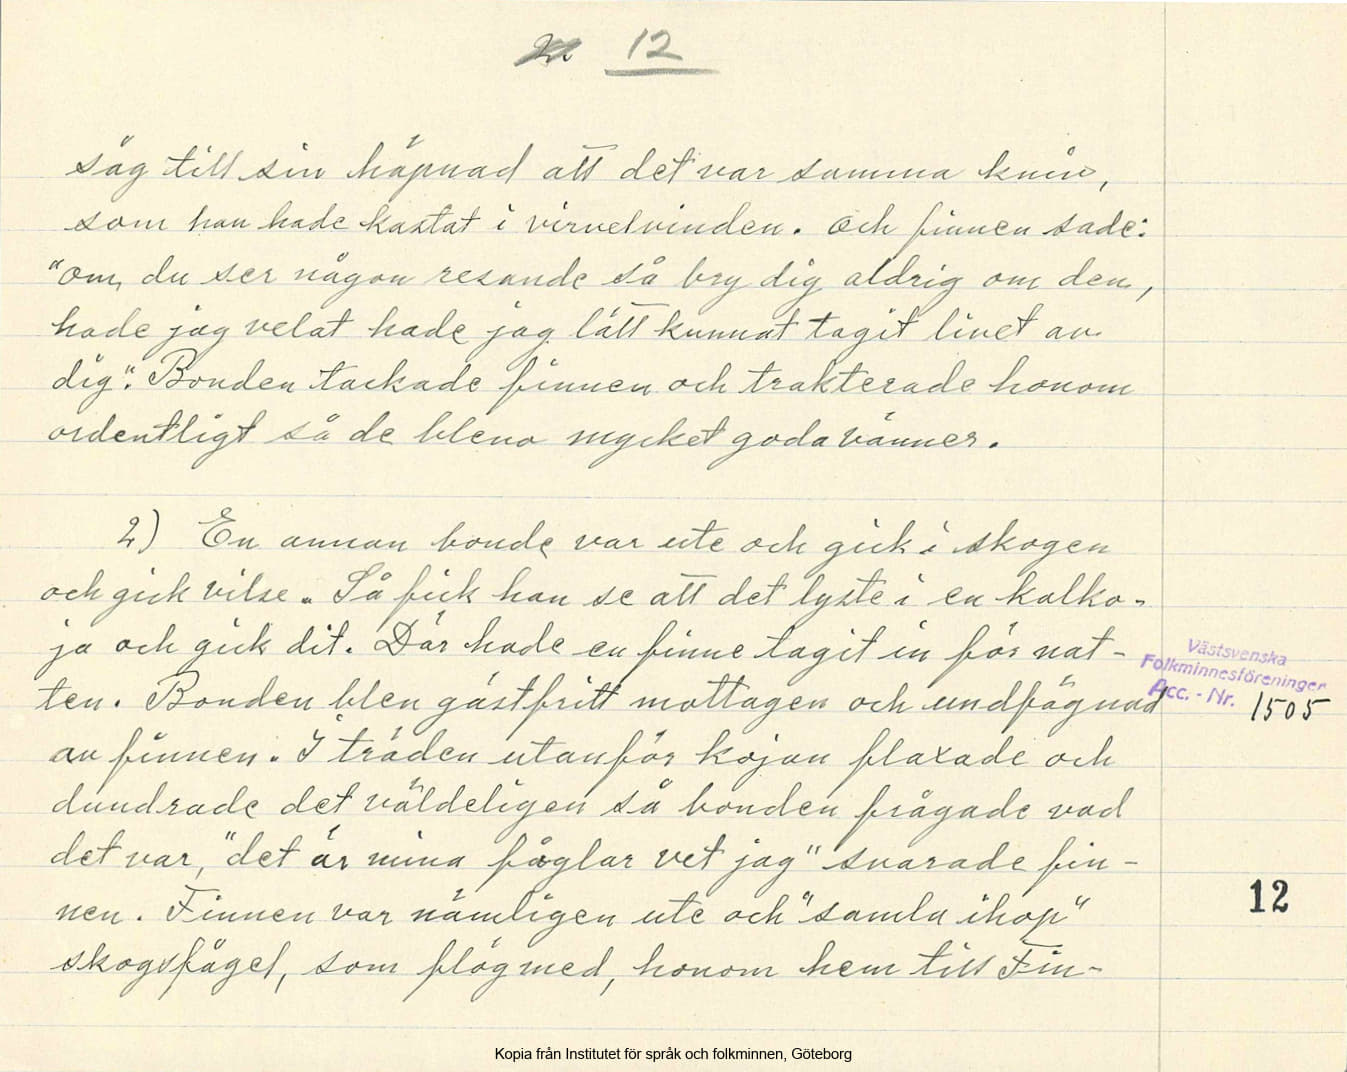 12
såg till sin häpnad att det var samma kniv,
som han hade kastat i virvelvinden. och finnen sade:
"om du ser någon resande så bry dig aldrig om den,
hade jag velat hade jag lätt kunnat tagit livet av
dig". Bonden tackade finnen och trakterade honom
ordentligt så de blevo mycket goda vänner.
2) En annan bonde var ute och gick i skogen
och gick vilse. Så fick han se att det lyste i en kolko-
ja och gick dit. Där hade en finne tagit in för nat-
ten. Bonden blev gästfritt mottagen och undfägnad
av finnen. I träden utanför kojan flaxade och
dundrade det väldeligen så bonden frågade vad
det var, "det är mina fåglar vet jag" svarade fin-
nen. Finnen var nämligen ute och "samla ihop"
skogsfågel, som flög med, honom hem till Fin-
Västsvenska
Folkminnesföreningen
Acc. - Nr. 1505
12
Kopia från Institutet för språk och folkminnen, Göteborg